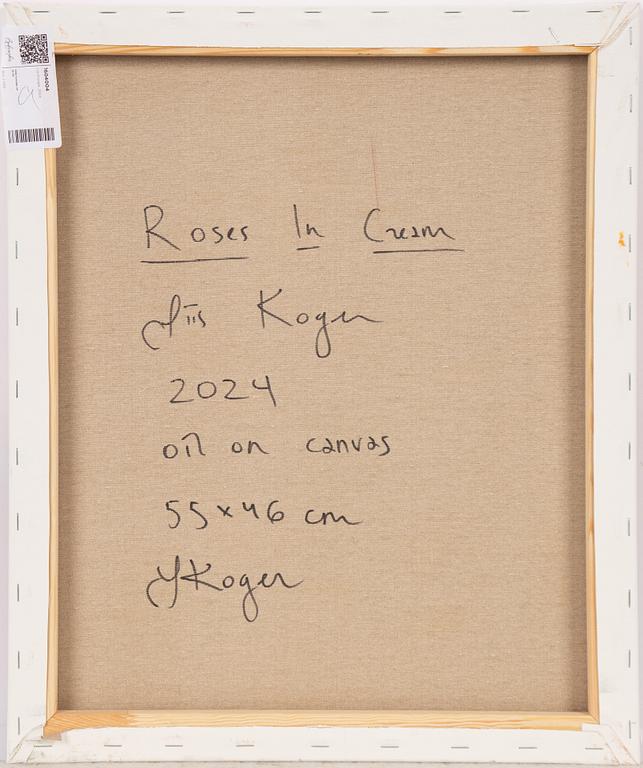 1604004
Roses In Cream
Jiis Koger
2024
oil on canvas
55x46 cm
JKoger